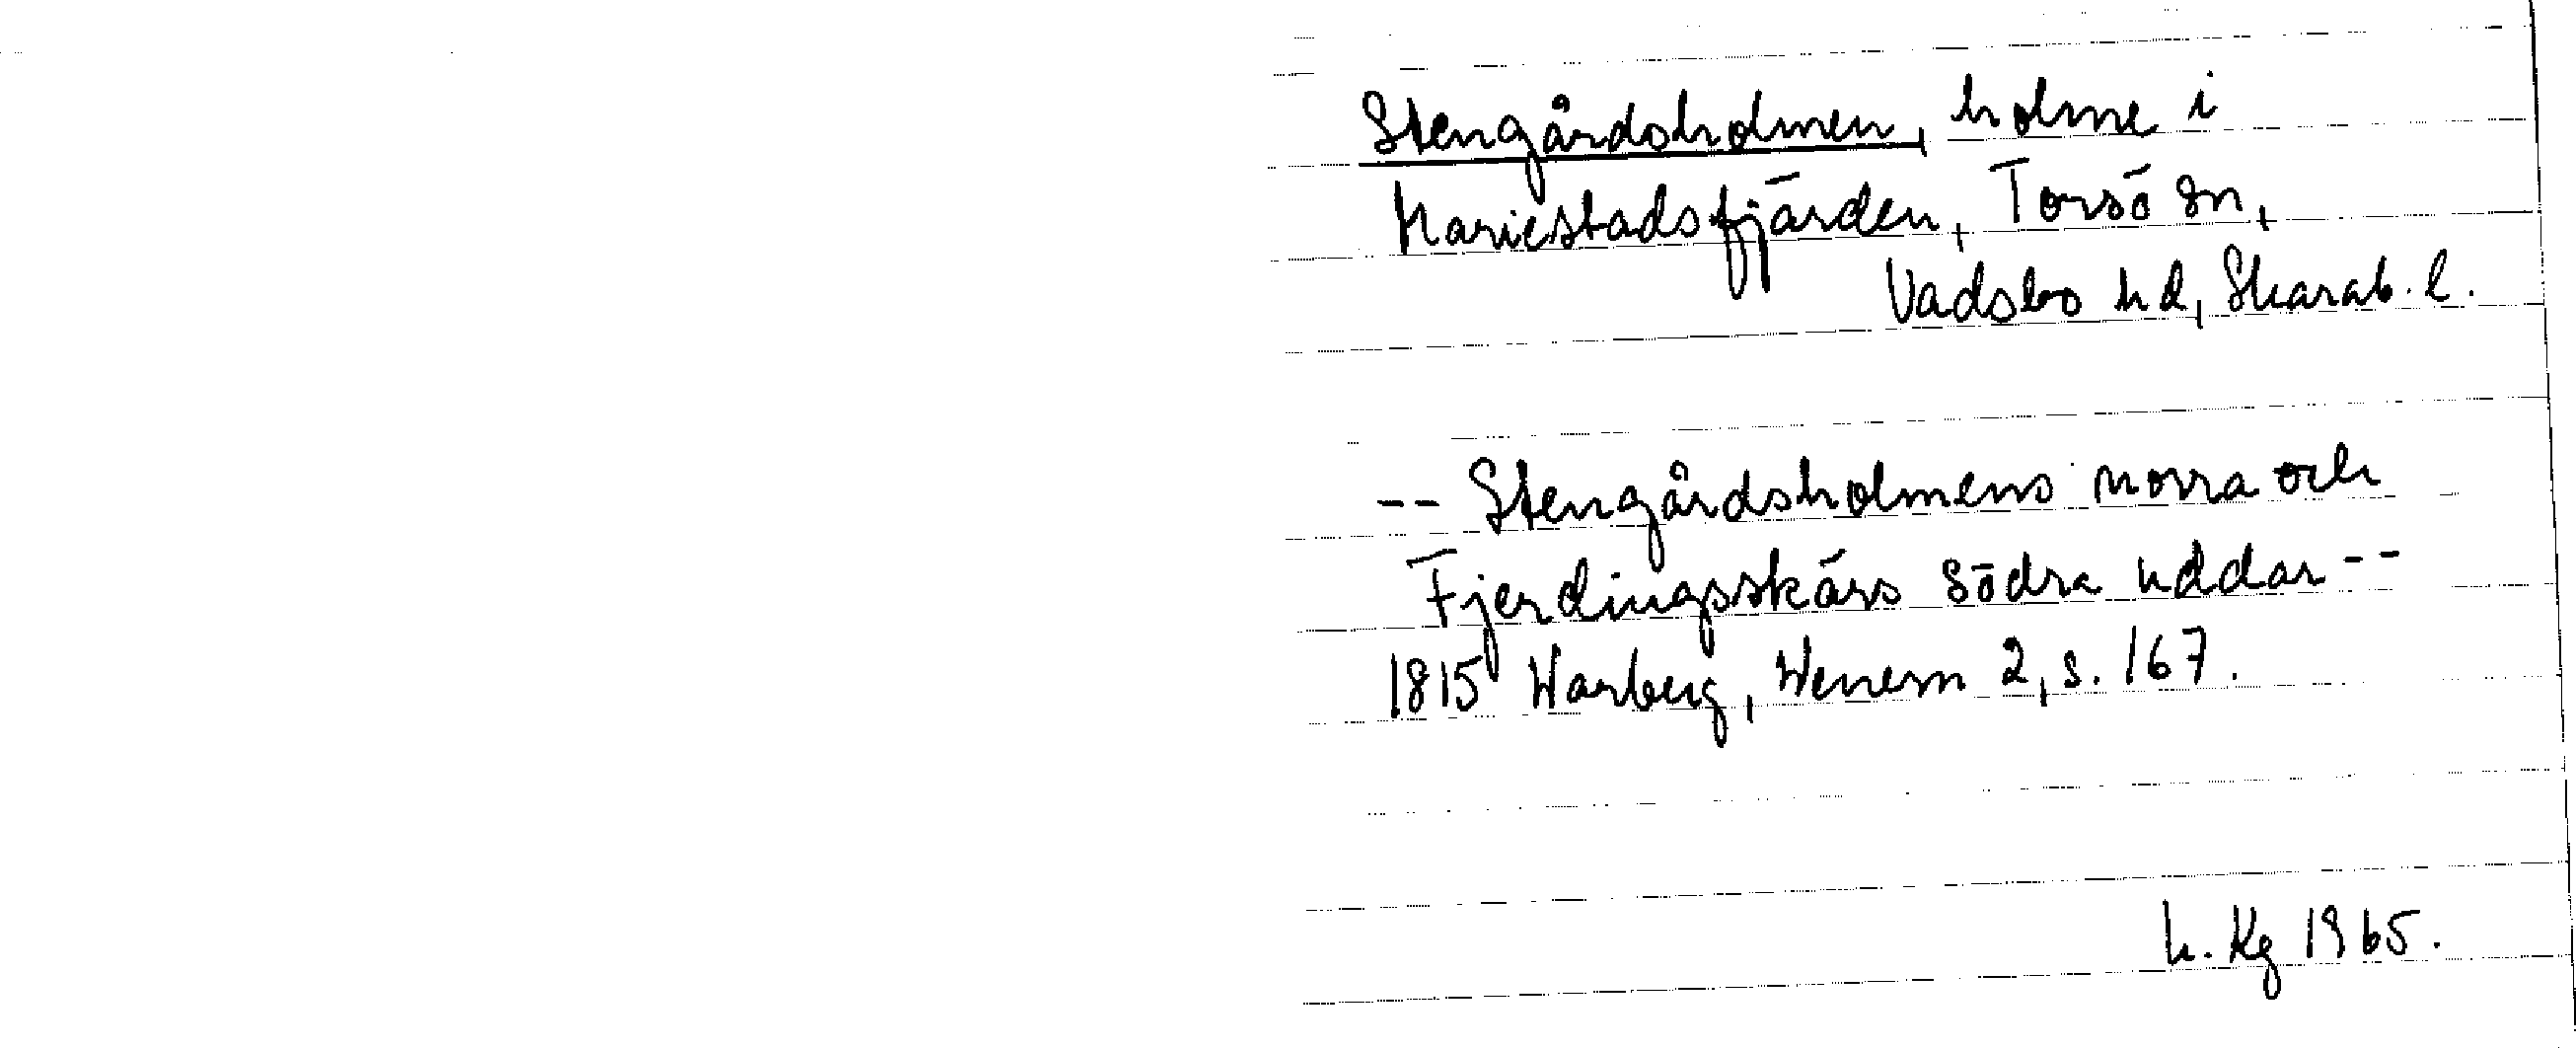 Stengårdsholmen, holme i
Mariestadsfjärden, Torsö sn,
Vadsbo hd, Skarab. l.
-- Stengårdsholmens norra och
Fjerdingsskärs södra uddar --
1815 Warberg, Wenern 2, s. 167.
h. Kg 1965.